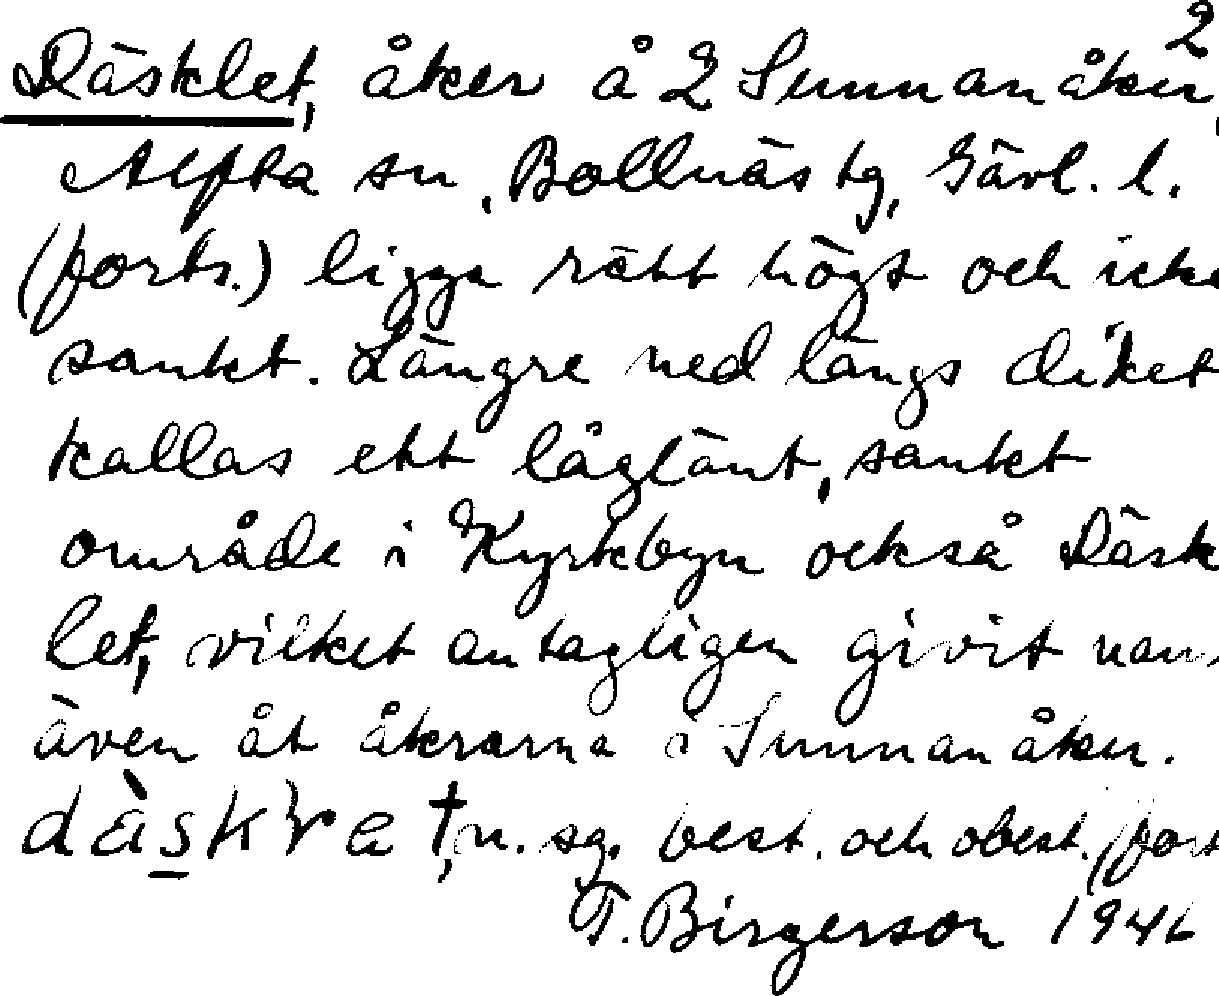 2
Däsklet, åker å 2 Sunnanåker,
Alfta sn, Bollnäs tg, Gävl. l.
(forts.) ligga rätt högt och icke
sankt. Längre ned längs diket
kallas ett låglänt, sankt
område i Kyrkbyn också Däsk
let, vilket antagligen givit namn
även åt åkrarna i Sunnanåker.
n. sg. best. och obest. (forts
T. Birgerson 1946